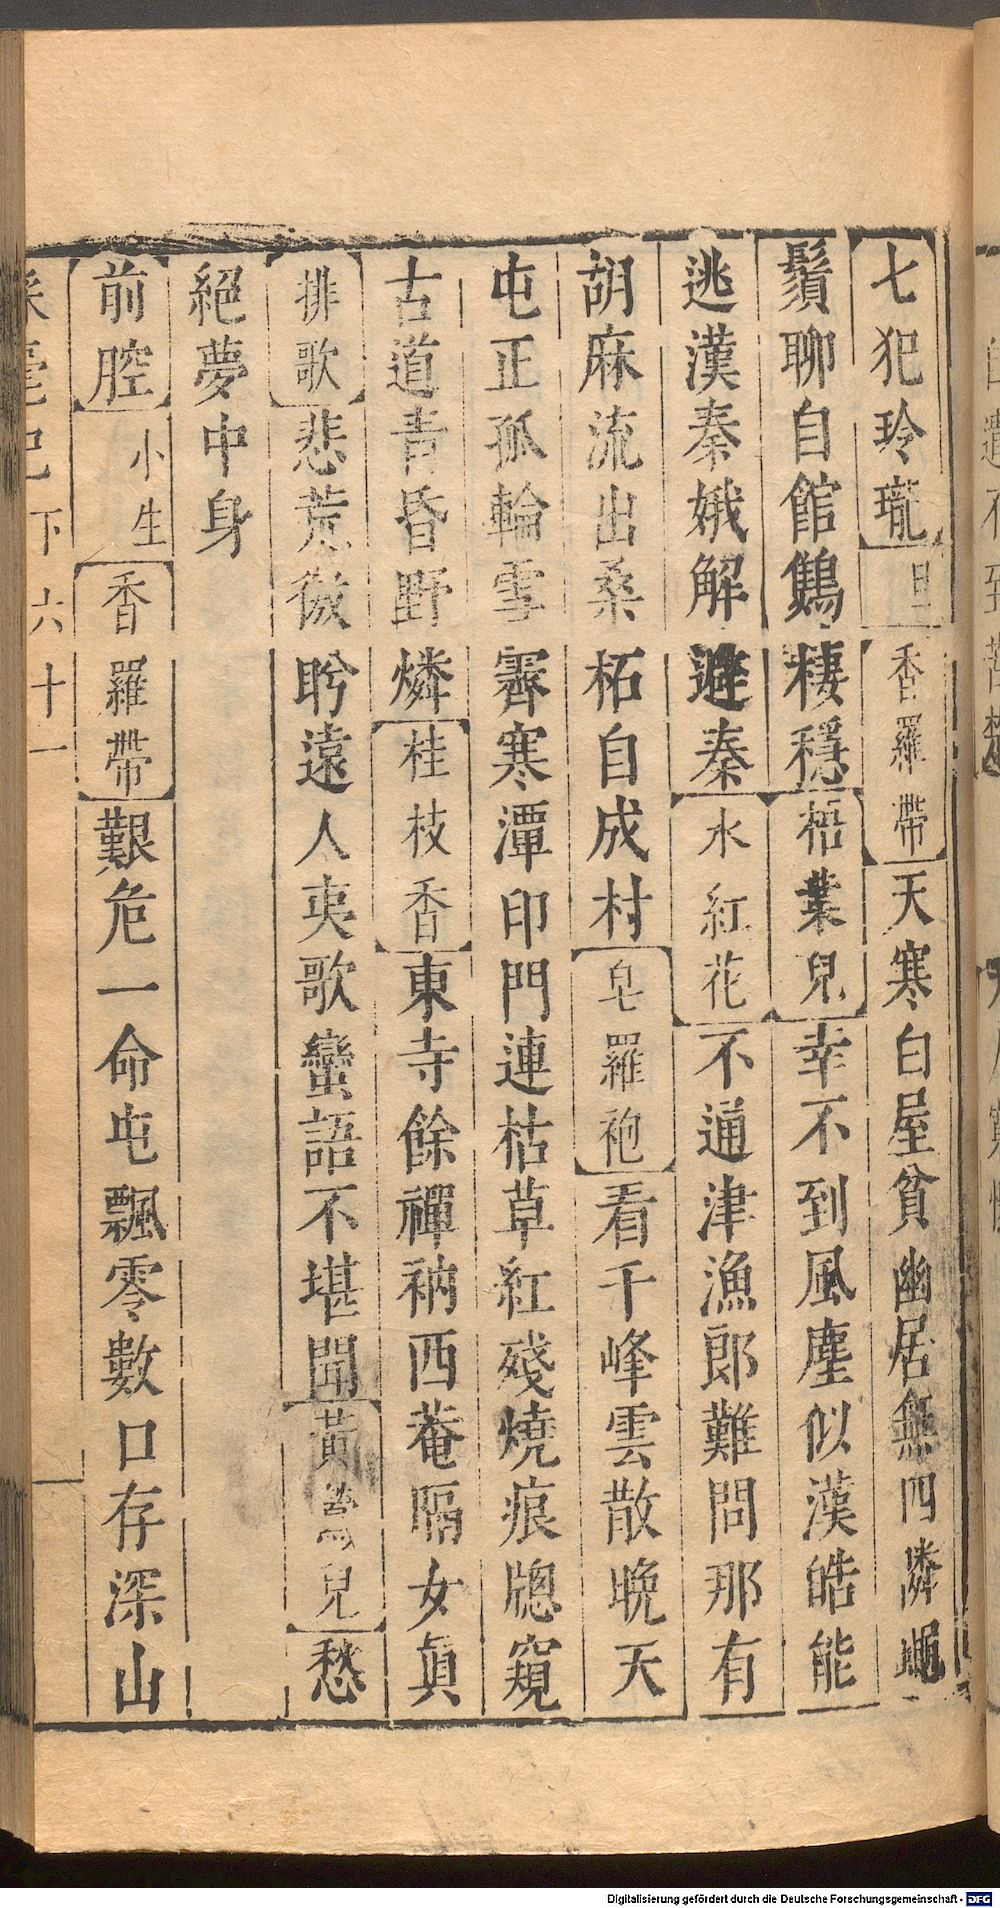 七犯玲瓏旦香羅帶天寒白屋貧幽居無四隣蠅
鬚聊自館鷦棲穩梧葉兒幸不到風塵似漢皓能
逃漢秦娥解避秦水紅花不通津漁郎難問那有
胡麻流出桑柘自成村皂羅袍看千峰雲散晚天
屯正孤輪雪霽寒潭印門連枯草紅殘燒痕牕窺
古道青昏野燐桂枝香東寺餘禪衲西菴隔女眞
排歌悲荒徼盻遠人夷歌蠻語不堪聞黃鶯兒愁
絕夢中身
前腔小生香羅帶艱危一命屯飄零數口存深山
毫記下六十一
Digitalisierung gefördert durch die Deutsche Forschungsgemeinschaft - DFG